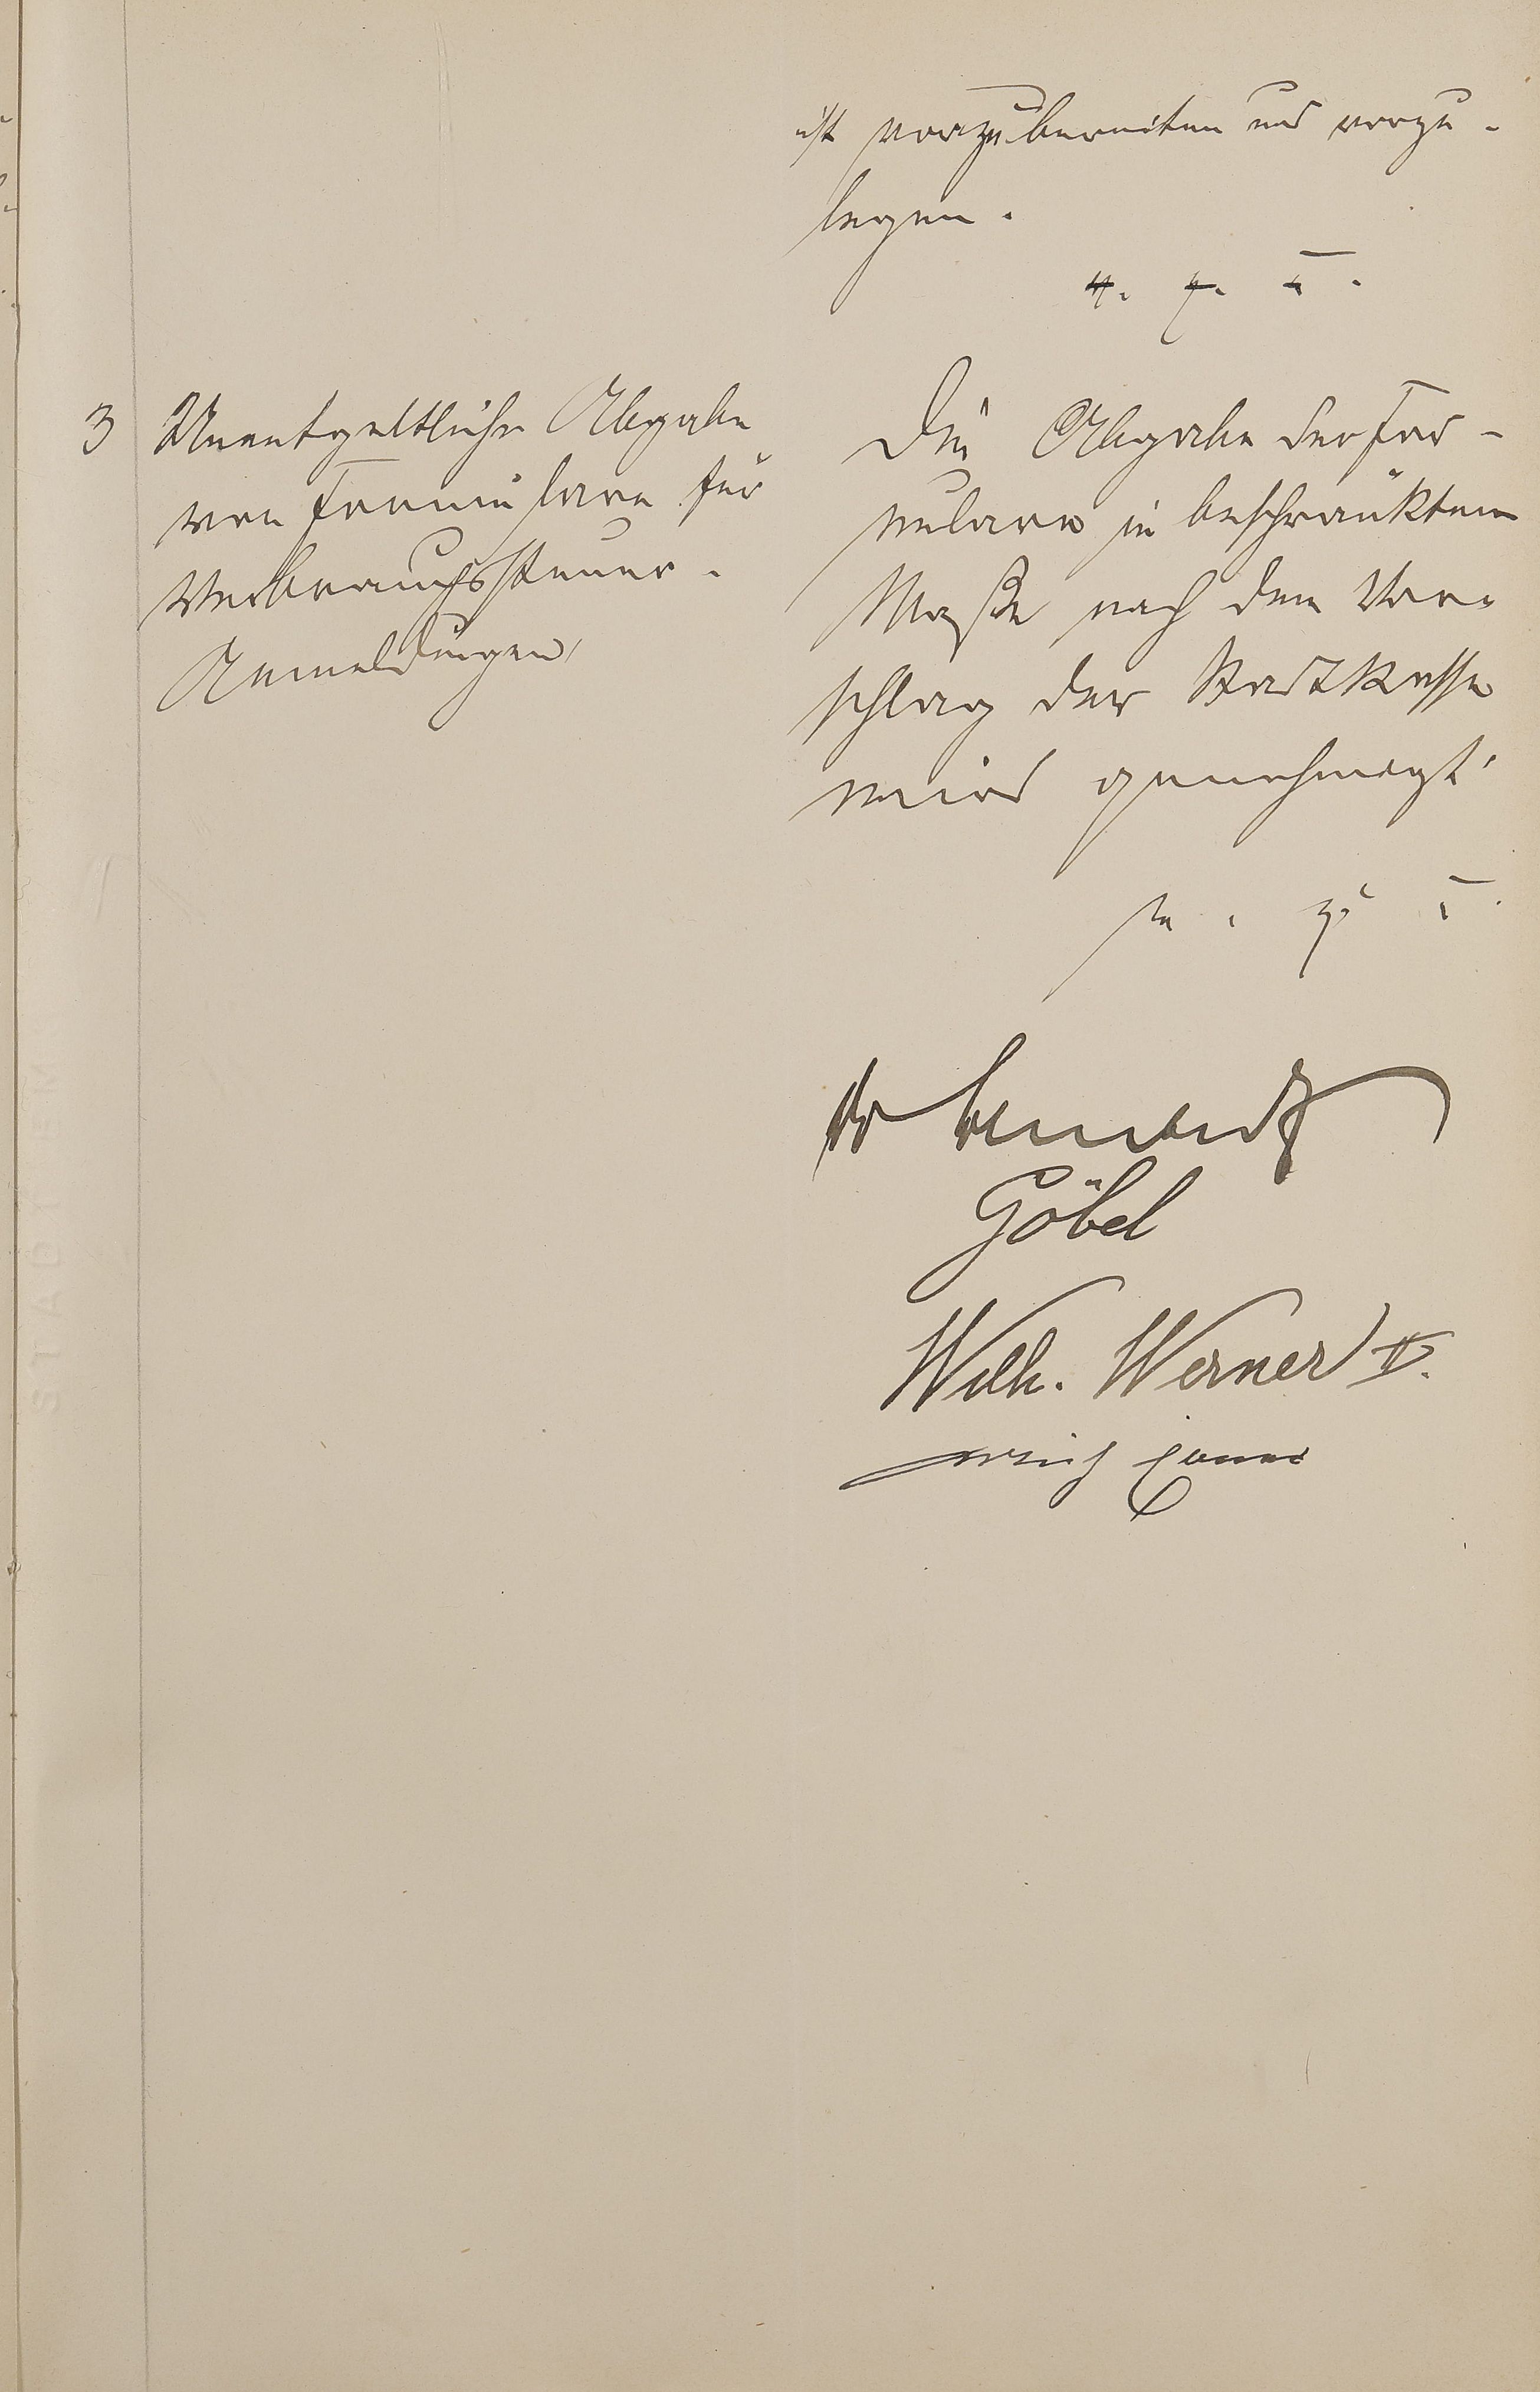 ist vorzubereiten und vorzu-
legen.
3 Unentgeltliche Abgabe
von Formulare für
Verbrauchssteuer-
Anmeldungen
Die Abgabe der For-
mulare in beschränktem
Maße nach dem Vor-
schlag der Stadtkasse
wird genehmigt.
Göbel
Wilh. Werner